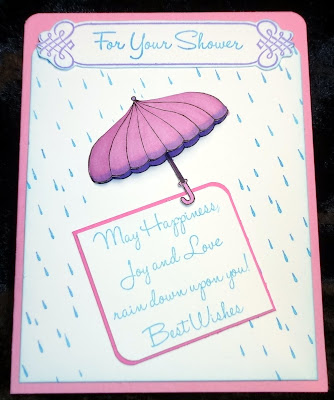 For Your Shower
May Happiness,
Joy and Love
rain down upon you!
Best Wishes